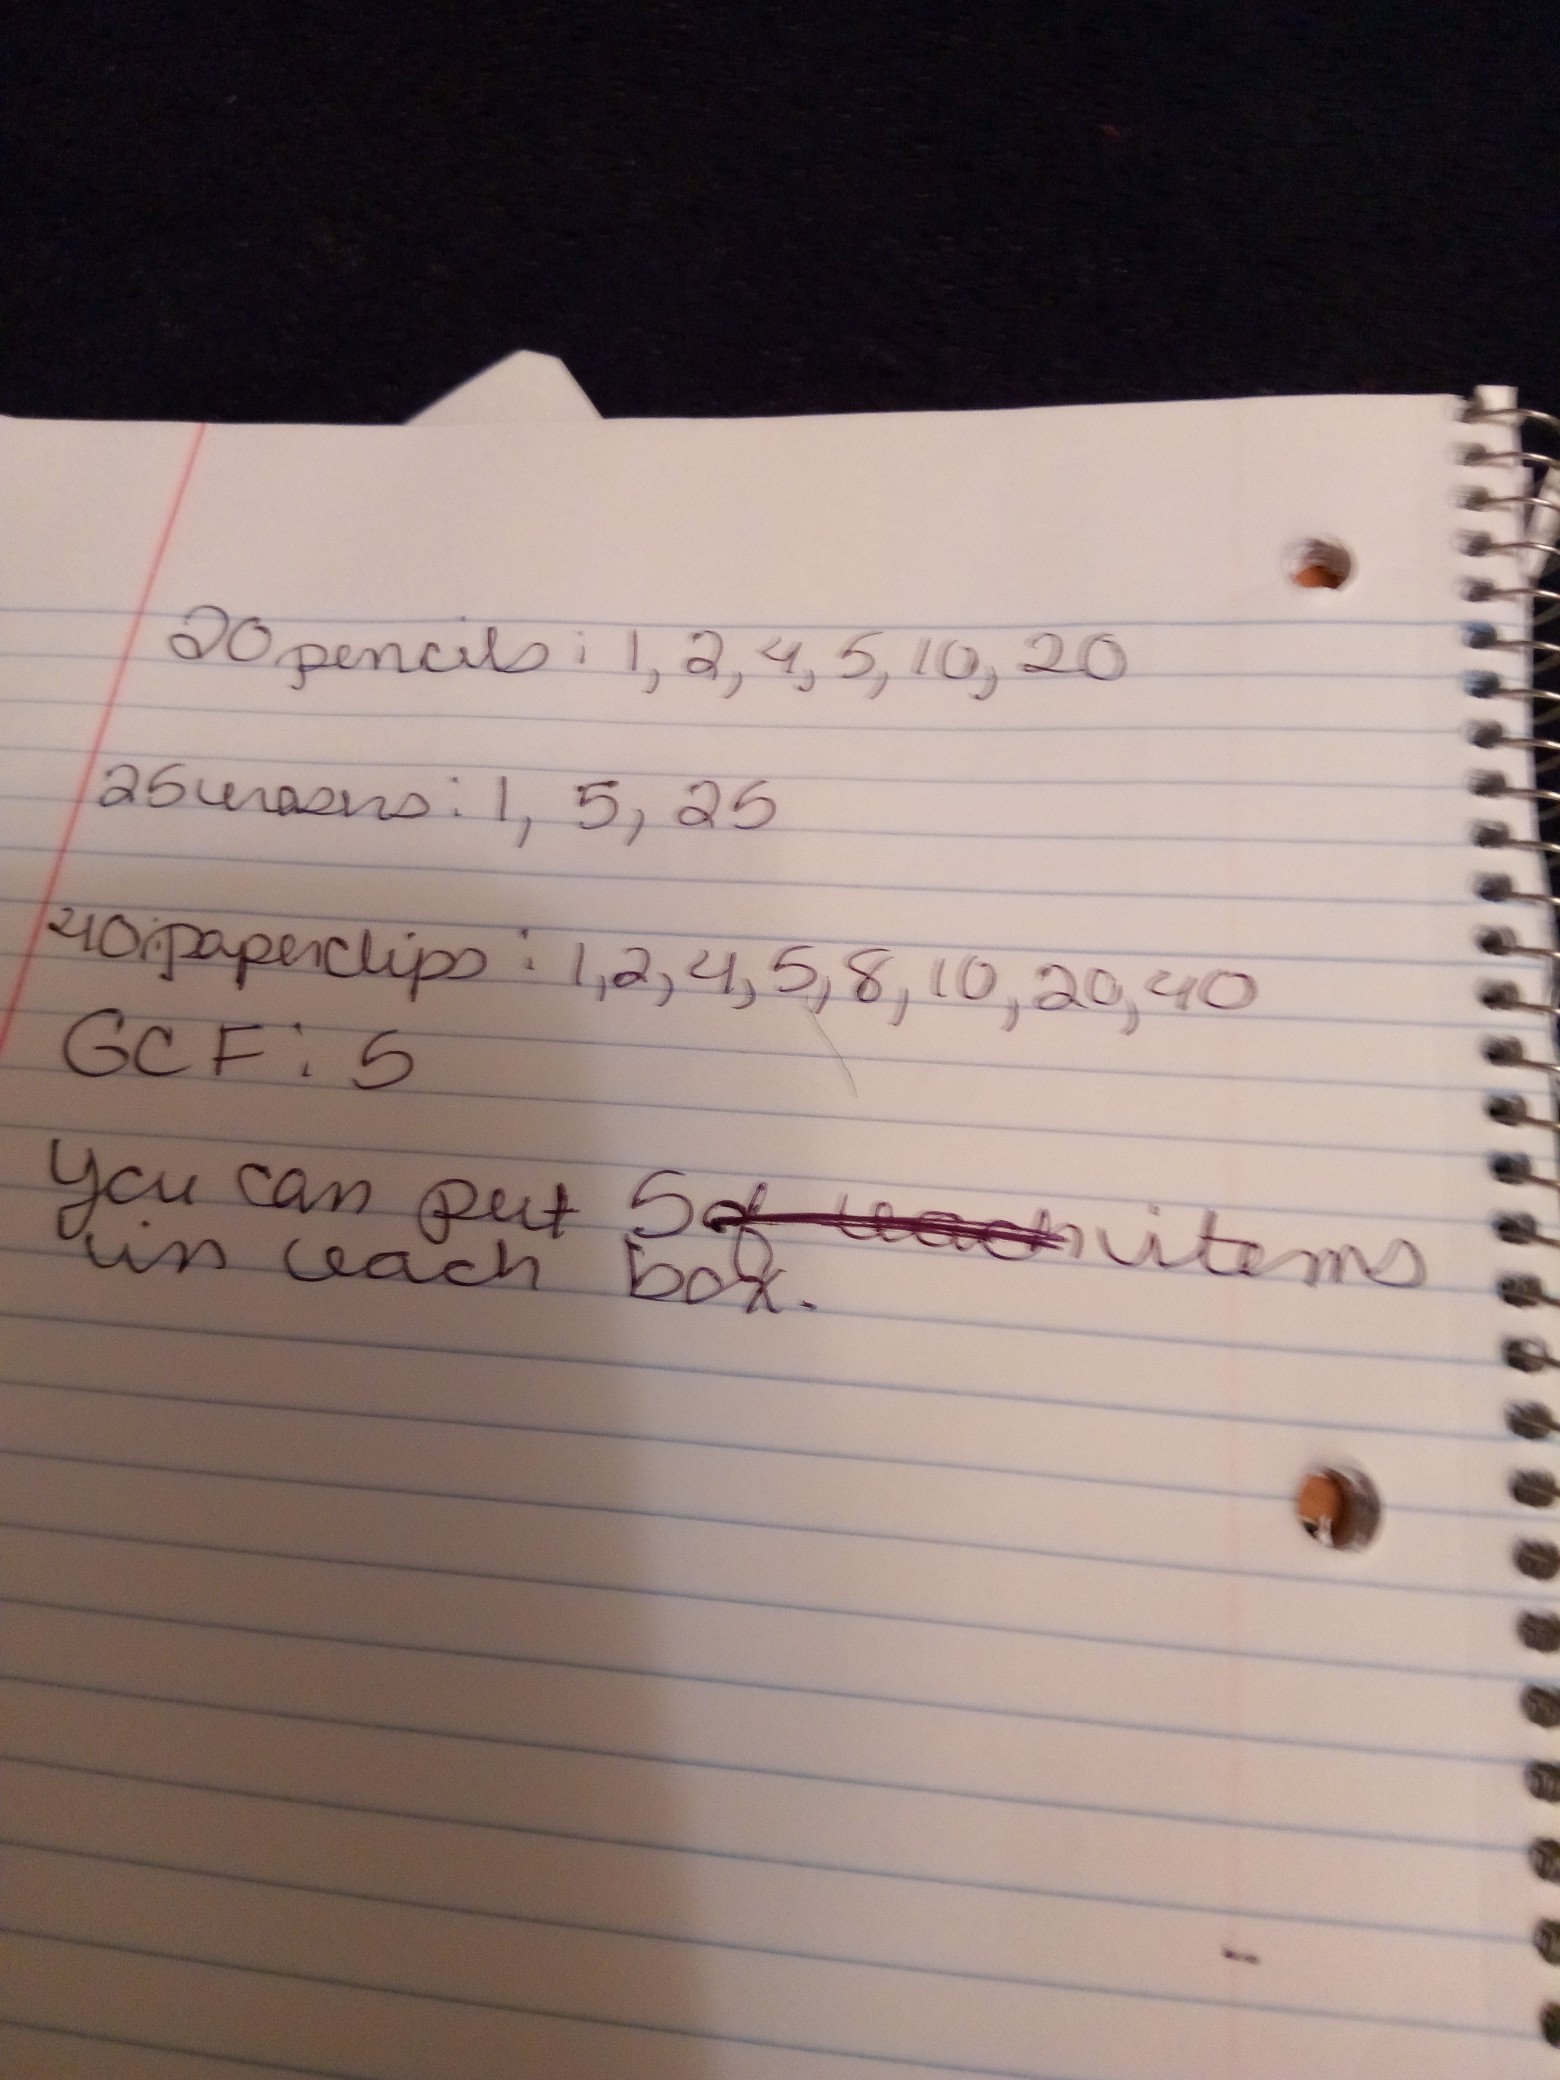 20 pencils: 1, 2, 4, 5, 10, 20
25 erasers: 1, 5, 25
40 paperclips: 1, 2, 4, 5, 8, 10, 20, 40
GCF: 5
you can put 5 of each items
in each box.